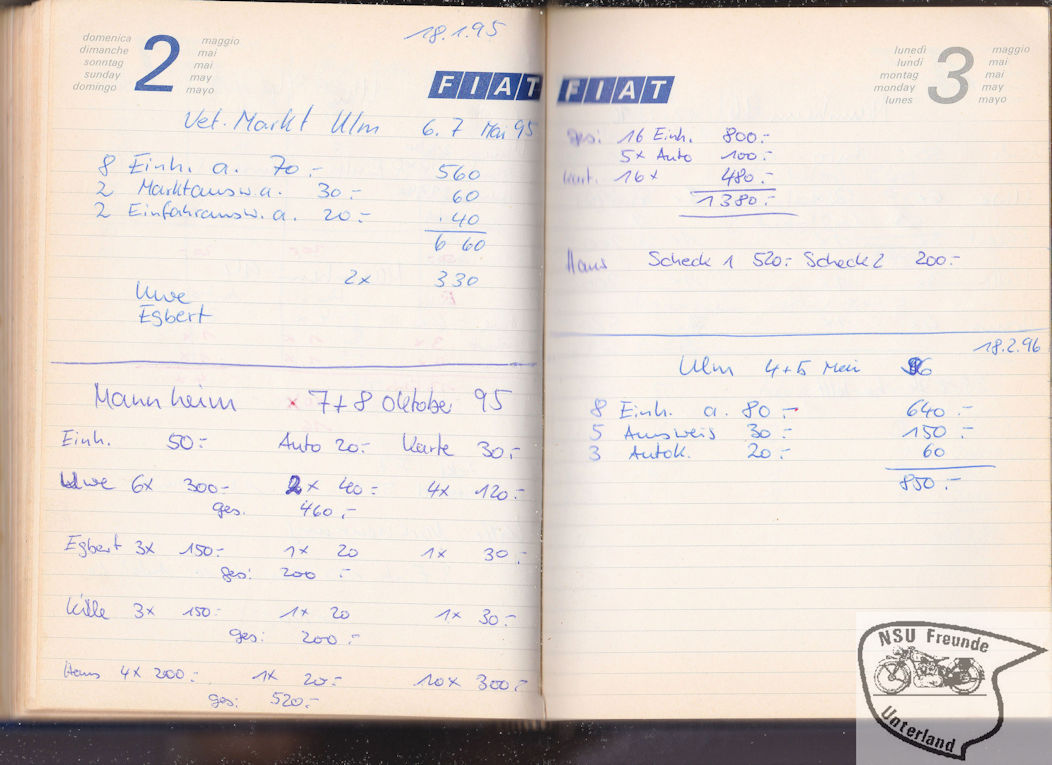 18.1.95
domenica maggio
dimanche mai
sonntag mai
sunday may
domingo mayo
2
FIAT
Vet. Markt Ulm 6. 7 Mai 95
8 Einh. a. 70.- 560
2 Marktausw. a. 30.- 60
2 Einfahrausw. a. 20.- 40
660
2x 330
Uwe
Egbert
Mannheim x 7+8 Oktober 95
Einh. 50.- Auto 20.- Karte 30.-
Uwe 6x 300.- 2x 40.- 4x 120.-
ges. 460.-
Egbert 3x 150.- 1x 20 1x 30.-
ges: 200.-
Kille 3x 150.- 1x 20 1x 30.-
ges: 200.-
Hans 4x 200.- 1x 20.- 10x 300.-
ges: 520.-
lunedì maggio
lundi mai
montag mai
monday may
lunes mayo
3
FIAT
ges: 16 Einh. 800.-
5x Auto 100.-
Kart. 16x 480.-
1380.-
Hans Scheck 1 520.- Scheck 2 200.-
18.2.96
Ulm 4+5 Mai 96
8 Einh. a. 80.- 640.-
5 Ausweis 30.- 150.-
3 Autok. 20.- 60
850.-
NSU Freunde
Unterland